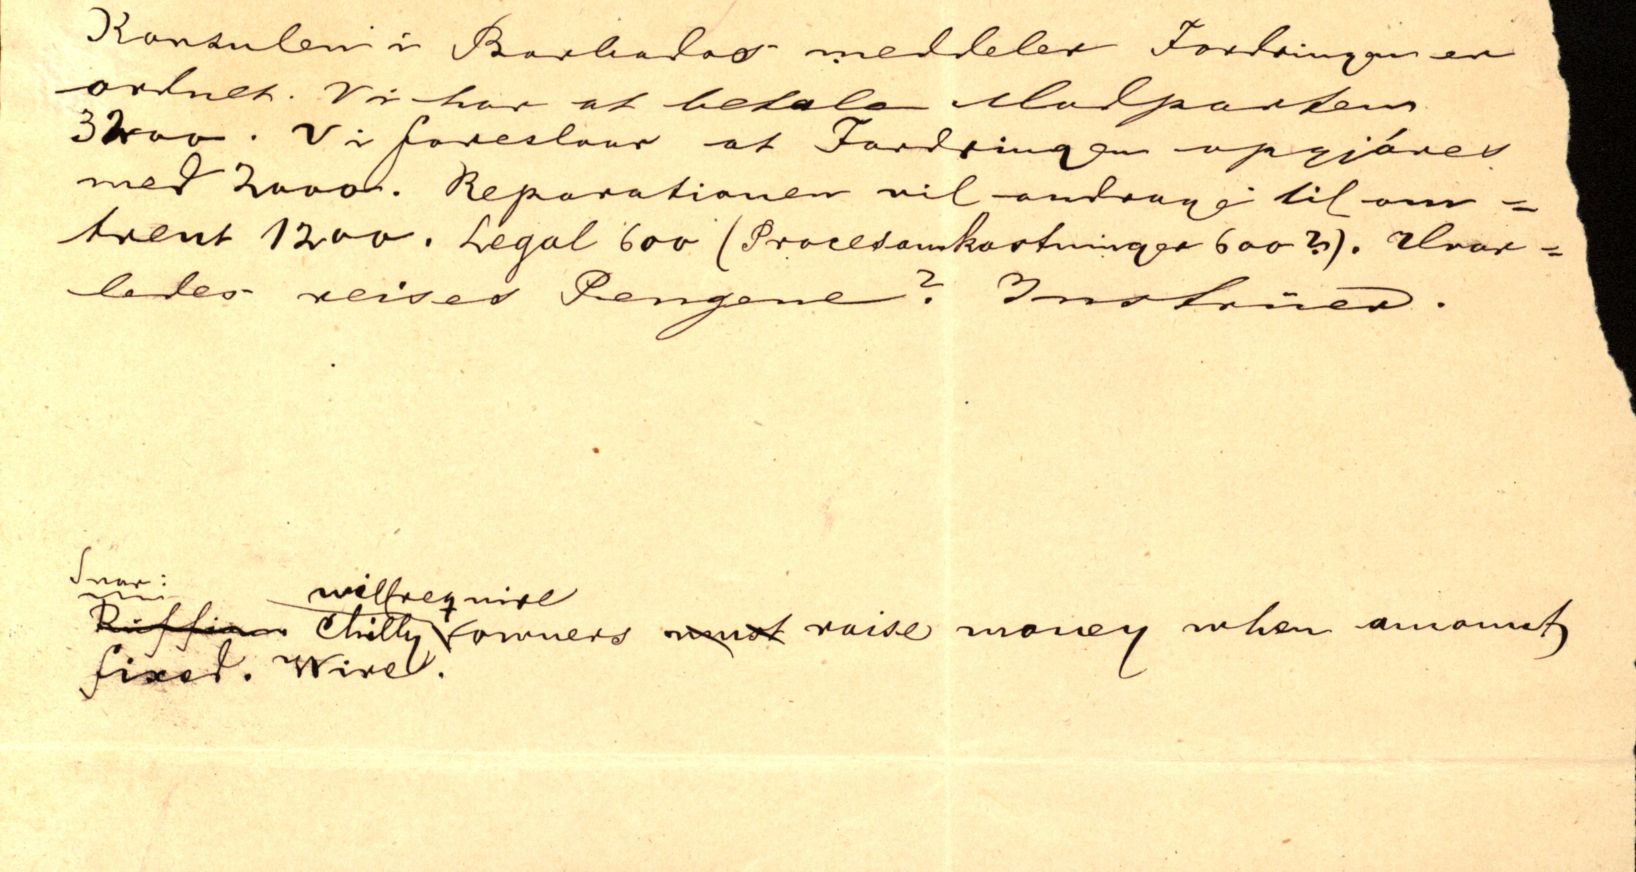 Konsulen i Barbados meddeler Fordringen er
ordnet. Vi har at betale Modparten
3200. Vi foreslaar at Fordringen opgjøres
med 2000. Reparationen vil andrage til om=
trent 1200. Legal 600 (Procesomkostninger 600?). Hvor=
ledes reises Pengene? Instruer.
Svar:
will require
Ruffian Chilly owners must raise money when amount
fixed. Wire.